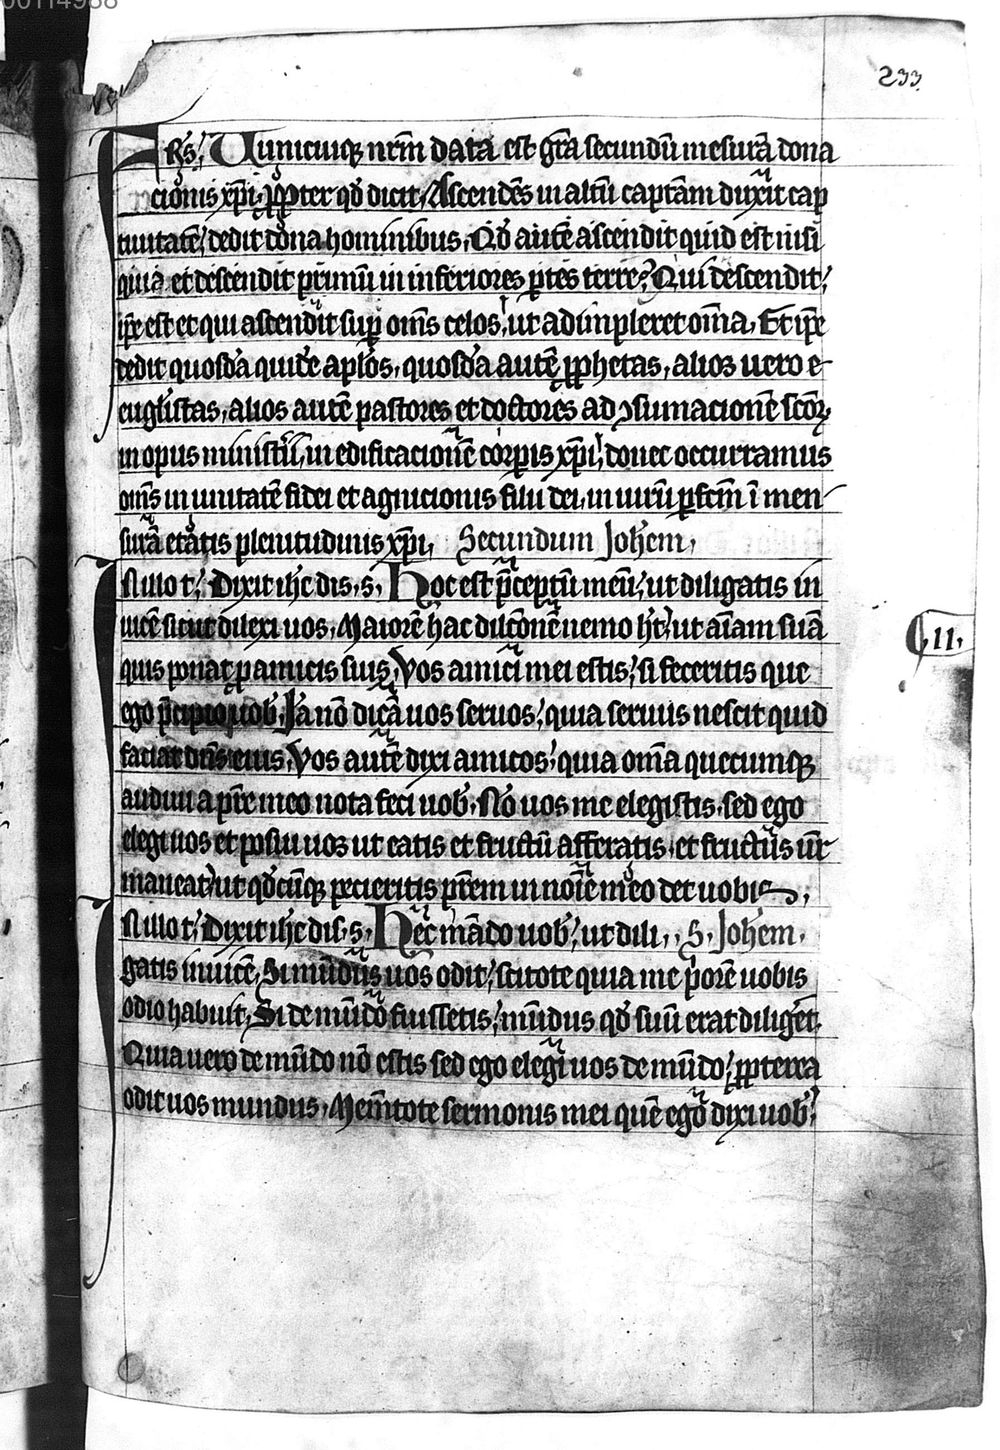 00114988
233
FRS. Unicuiq; nr̄m data est gr̄a secundū mesurā dona
cionis xp̄i. Propter qd̄ dicit. Ascendēs in altū captā duxit cap
tiuitatē, dedit dona hominibus. Qd̄ autē ascendit quid est nisi
quia et descendit primū in inferiores ꝑtes terre? Qui descendit,
ip̄e est et qui ascendit suꝑ om̄s celos, ut adimpleret om̄a. Et ip̄e
dedit quosdā quidē apl̄os, quosdā autē ꝓphetas, alios uero e-
euglīstas, alios autē pastores et doctores ad ꝯsumacionē sc̄oꝝ
in opus ministˢii, in edificacionē corꝑis xp̄i, donec occurramus
om̄s in unitatē fidei et agnicionis filii dei, in uirū ꝑfc̄m ī men-
surā etatis plenitudinis xp̄i, Secundum Joh̄em,
N illo t̄. Dixit ih̄c dis. s. Hoc est p̄ceptū meū, ut diligatis in
uicē sicut dilexi uos. Maiorē hac dilc̄onē nemo h̄t, ut aīam suā
quis ponat p̄ amicis suis. Vos amici mei estis, si feceritis que
ego p̄cipio uob̄. Jā nō dicā uos seruos, quia seruus nescit quid
faciat dn̄s eius. Vos autē dixi amicos, quia om̄a quecumq;
audiui a pr̄e meo nota feci uob̄. Nō uos me elegistis, sed ego
elegi uos et posui uos ut eatis et fructū afferatis, et fructus ur̄
maneat, ut qd̄cūq; pecieritis pr̄em in noīe meo det uobis,
N illo t̄. Dixit ih̄c dis. s. Hec mādo uob̄, ut dili,, S. Joh̄em,
gatis inuicē. Si mūdus uos odit, scitote quia me priorē uobis
odio habuit. Si de mūdo fuissetis, mūdus qd̄ suū erat diligēt.
Quia uero de mūdo nō estis sed ego elegi uos de mūdo, ꝓpterea
odit uos mundus. Mem̄tote sermonis mei quē ego dixi uob̄,
11,